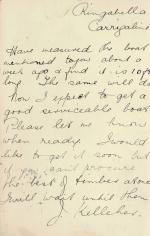 Ringabella
Carrigaline
Have measured the boat
mentioned to you about a
week ago & find it is 10ft
long. The same will do
Now I expect to get a
good serviceable boat
Please let me know
when ready. I would
like to get it soon but
if you can't procure
the best of timber at once
I will wait until then
J. Kelleher.